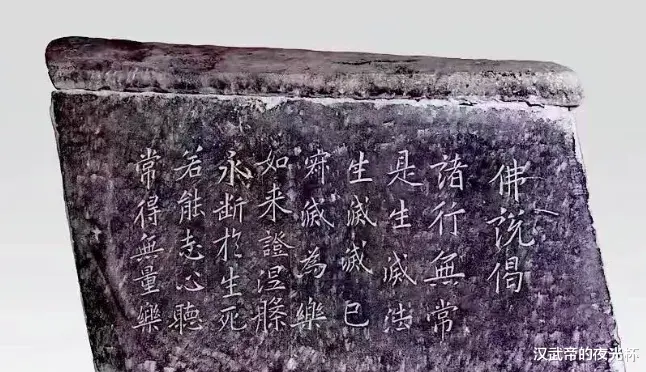 佛說偈
諸行無常
是生滅法
生滅滅已
寂滅為樂
如来證涅槃
永断於生死
若能志心聽
常得無量樂
汉武帝的夜光杯